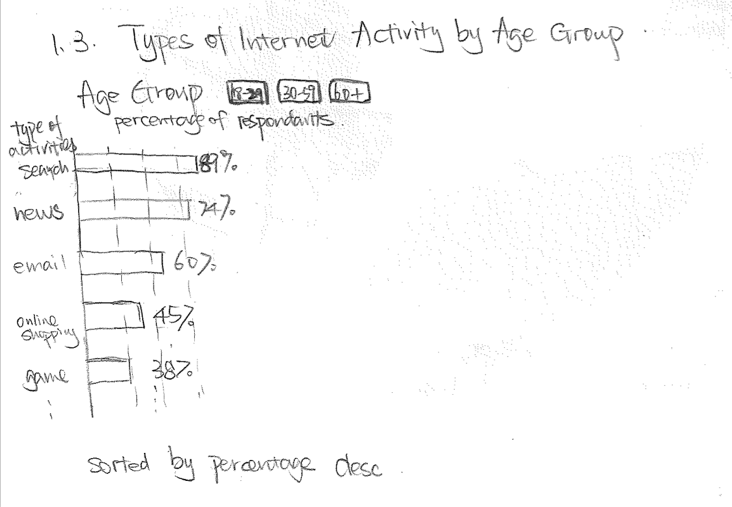 1.3. Types of Internet Activity by Age Group.
Age Group 18-29 30-59 60+
percentage of respondants.
type of
activities
search 89%
news 74%
email 60%
online
shopping 45%
game 38%
sorted by percentage desc.